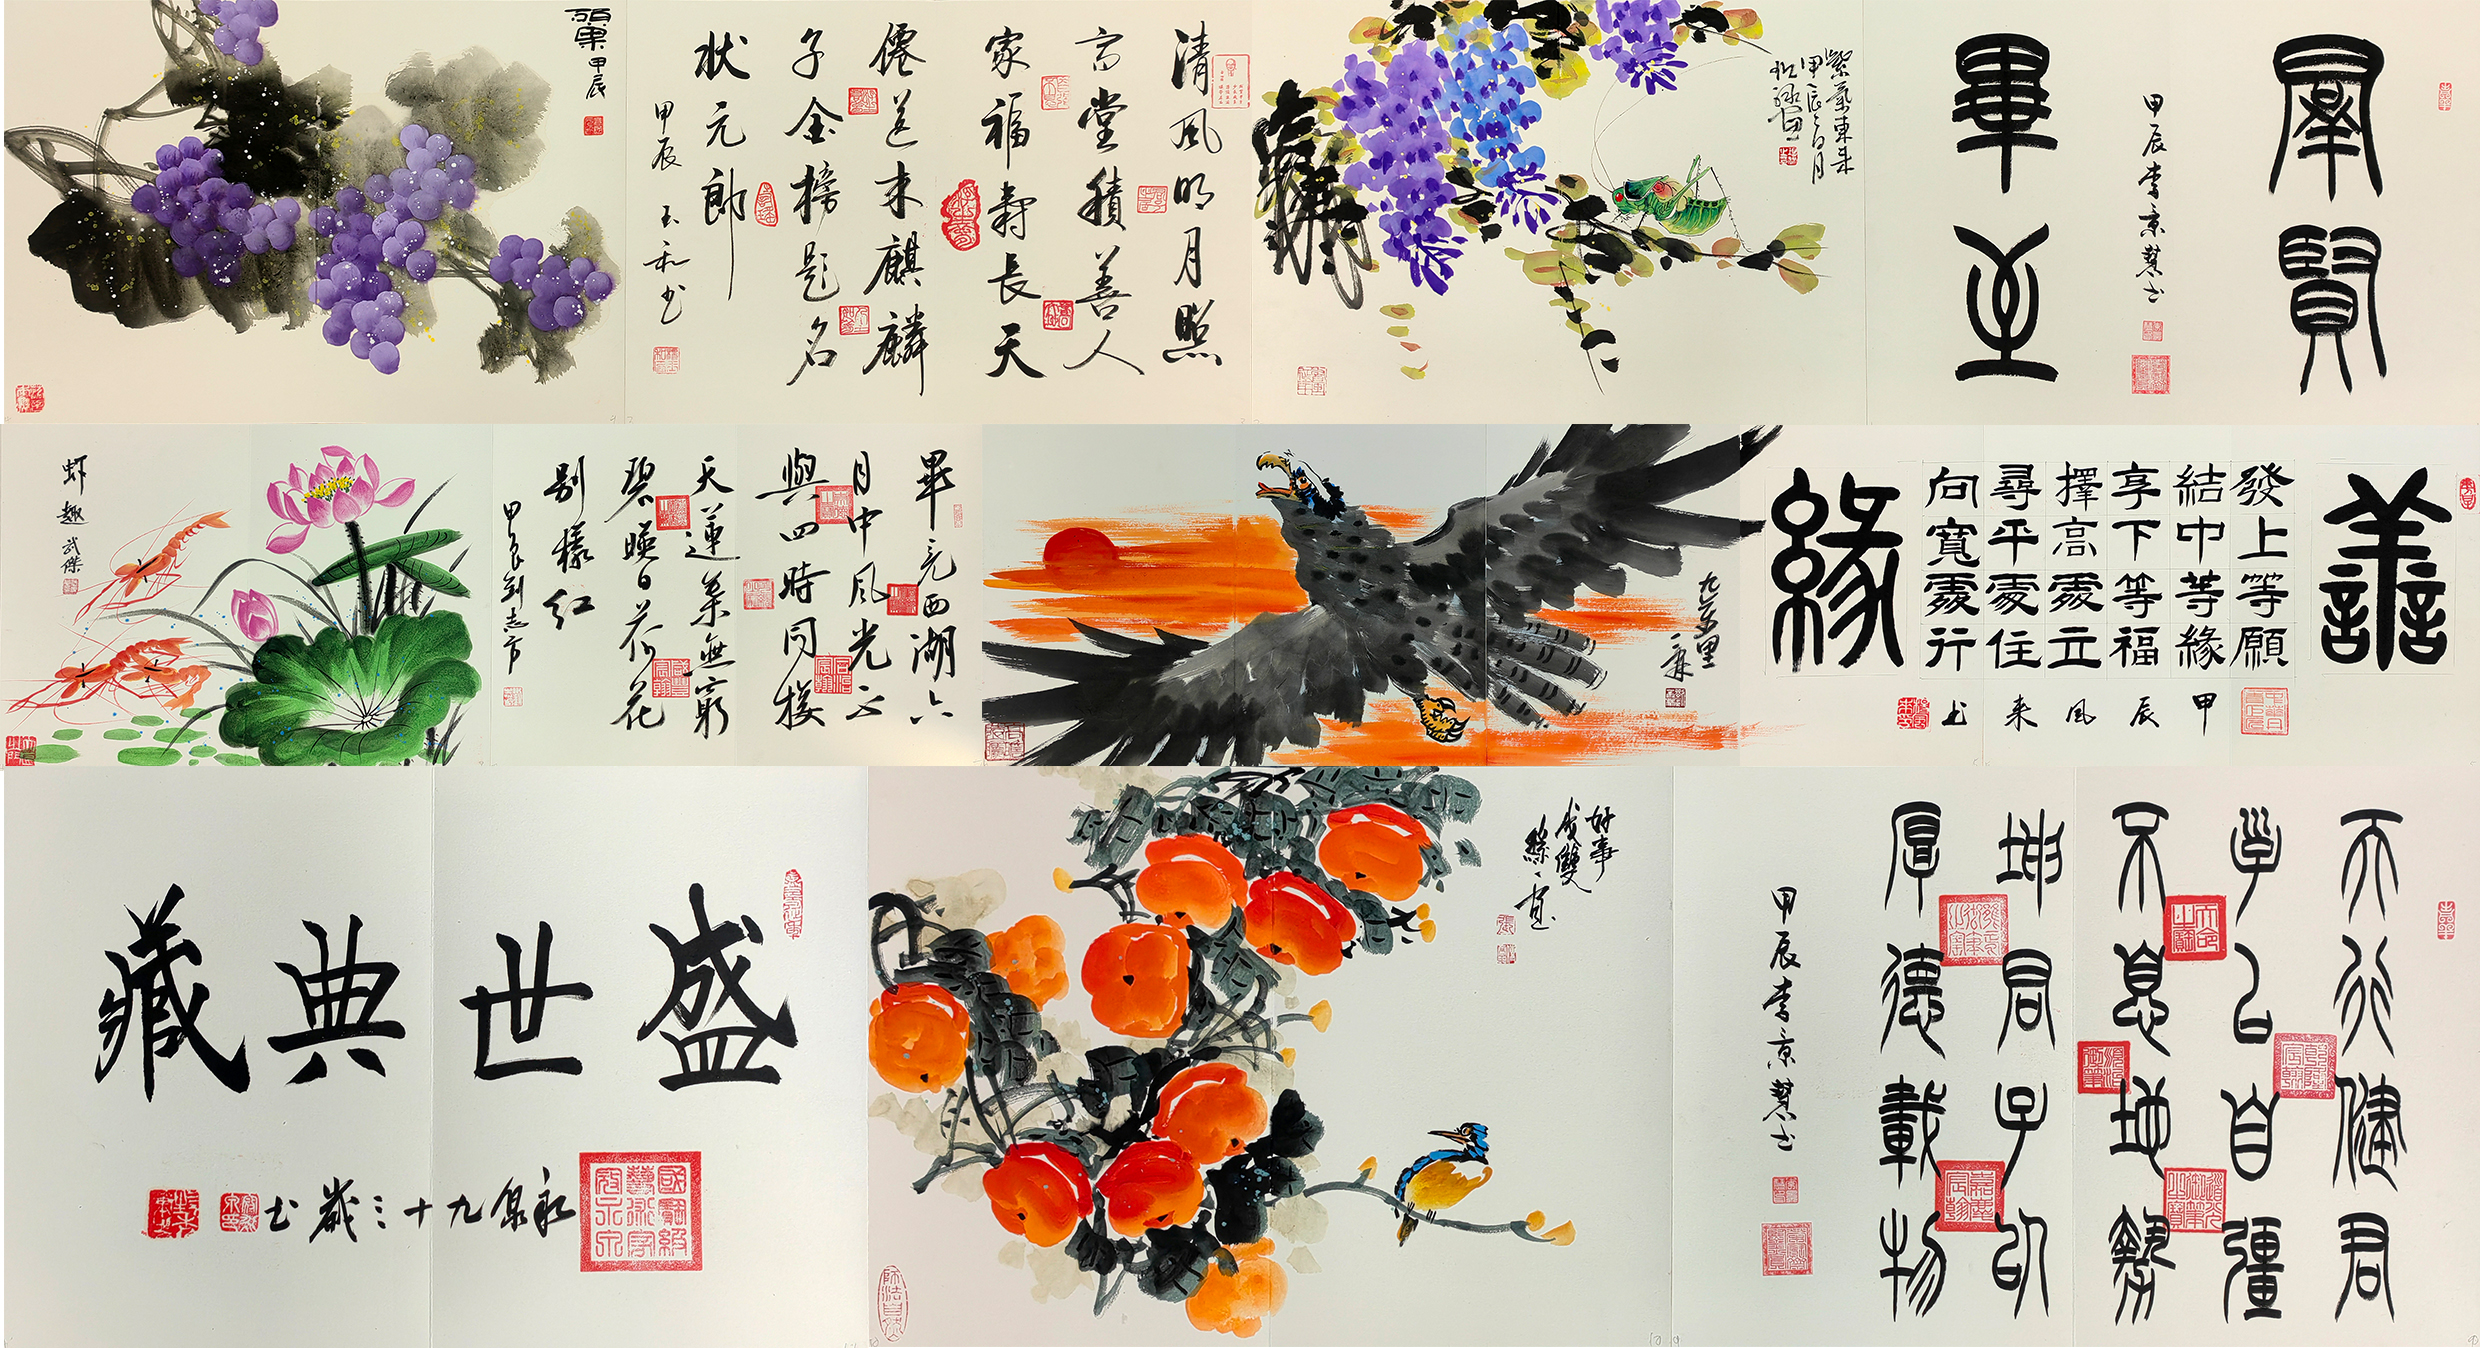 羣賢
畢至
甲辰李京慧书
紫氣東来
甲辰
清風明月照
高堂積善人
家福壽長天
僊送来麒麟
子金榜題名
狀元郎
甲辰 玉和书
碩果 甲辰
善
發上等願
結中等緣
享下等福
擇高處立
尋平處住
向寬處行
甲辰風来书
緣
九万里
畢竟西湖六
月中風光不
與四時同接
天蓮葉無窮
碧暎日荷花
别樣红
甲辰劉志方
虾趣 武傑
天行健君
子以自彊
不息地勢
坤君子以
厚德載物
甲辰李京慧书
好事
成雙
盛世典藏
永泉九十三歲书